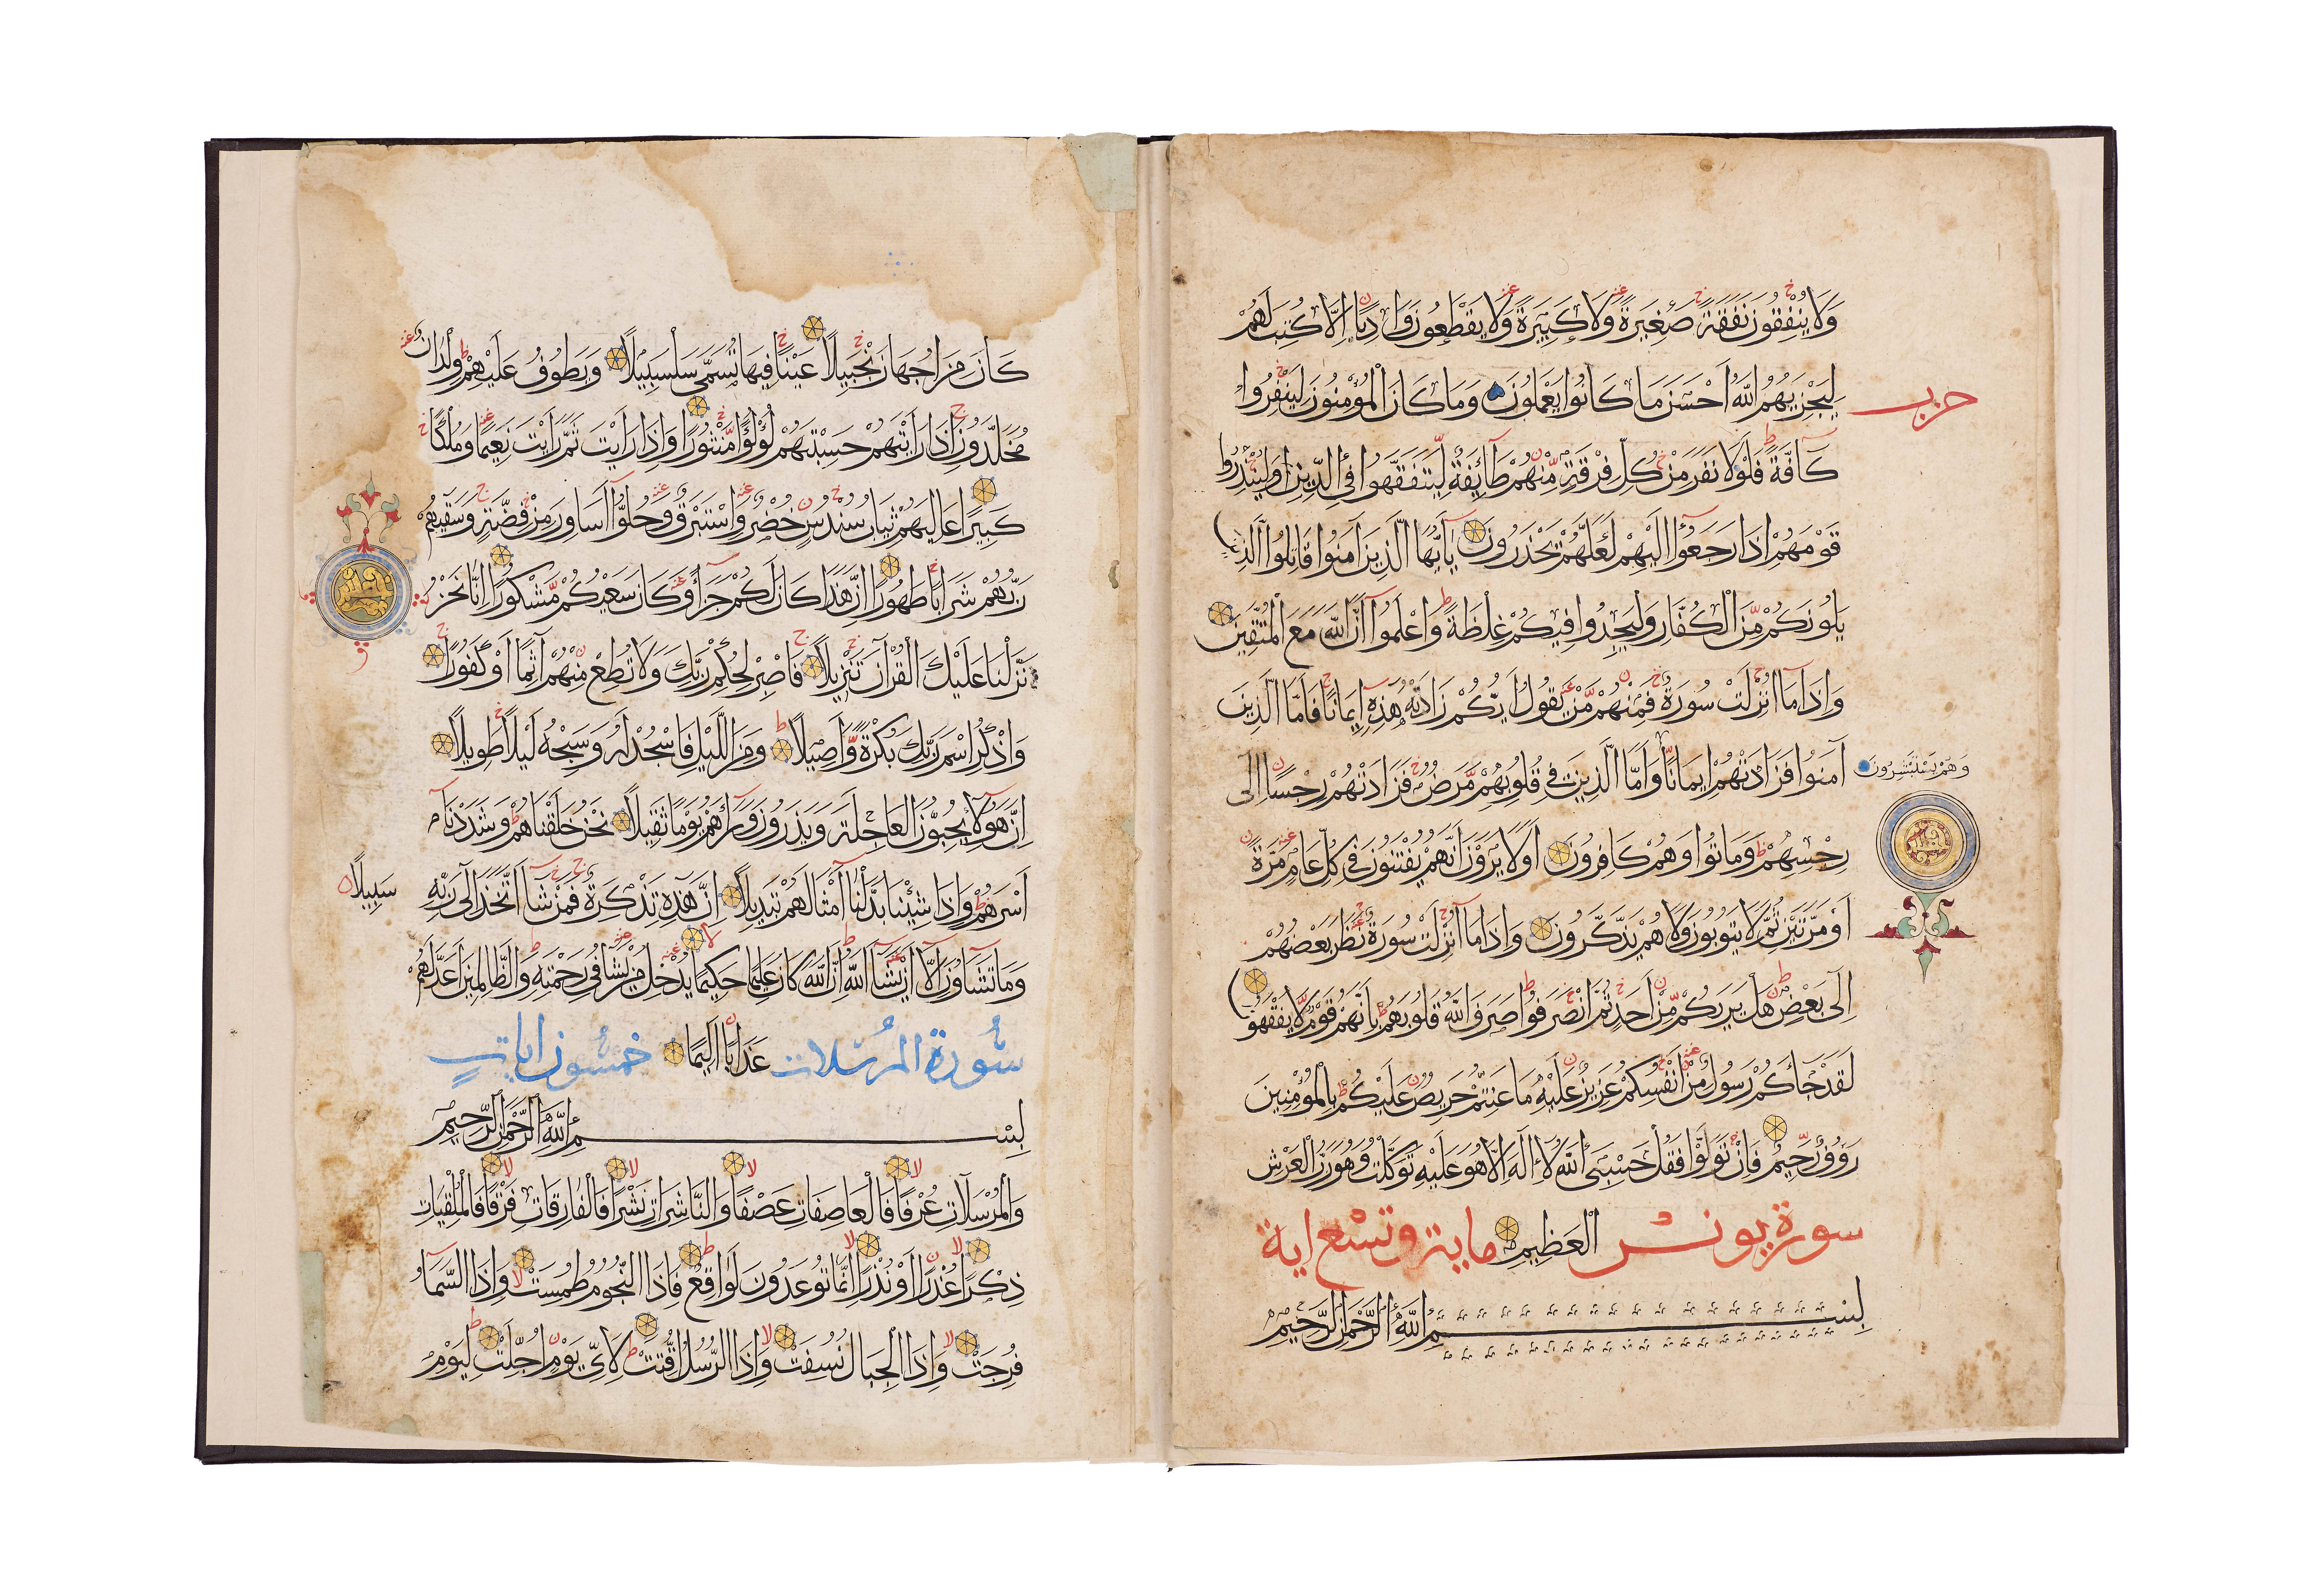 وَلَا يُنْفِقُونَ نَفَقَةً صَغِيرَةً وَلَا كَبِيرَةً وَلَا يَقْطَعُونَ وَادِيًا إِلَّا كُتِبَ لَهُمْ
حزب
لِيَجْزِيَهُمُ اللَّهُ أَحْسَنَ مَا كَانُوا يَعْمَلُونَ وَمَا كَانَ الْمُؤْمِنُونَ لِيَنْفِرُوا
كَافَّةً فَلَوْلَا نَفَرَ مِنْ كُلِّ فِرْقَةٍ مِنْهُمْ طَائِفَةٌ لِيَتَفَقَّهُوا فِي الدِّينِ وَلِيُنْذِرُوا
قَوْمَهُمْ إِذَا رَجَعُوا إِلَيْهِمْ لَعَلَّهُمْ يَحْذَرُونَ يَاأَيُّهَا الَّذِينَ آمَنُوا قَاتِلُوا الَّذِينَ
يَلُونَكُمْ مِنَ الْكُفَّارِ وَلْيَجِدُوا فِيكُمْ غِلْظَةً وَاعْلَمُوا أَنَّ اللَّهَ مَعَ الْمُتَّقِينَ
وَإِذَا مَا أُنْزِلَتْ سُورَةٌ فَمِنْهُمْ مَنْ يَقُولُ أَيُّكُمْ زَادَتْهُ هَذِهِ إِيمَانًا فَأَمَّا الَّذِينَ
آمَنُوا فَزَادَتْهُمْ إِيمَانًا وَأَمَّا الَّذِينَ فِي قُلُوبِهِمْ مَرَضٌ فَزَادَتْهُمْ رِجْسًا إِلَى
وَهُمْ يَسْتَبْشِرُونَ
رِجْسِهِمْ وَمَاتُوا وَهُمْ كَافِرُونَ أَوَلَا يَرَوْنَ أَنَّهُمْ يُفْتَنُونَ فِي كُلِّ عَامٍ مَرَّةً
أَوْ مَرَّتَيْنِ ثُمَّ لَا يَتُوبُونَ وَلَا هُمْ يَذَّكَّرُونَ وَإِذَا مَا أُنْزِلَتْ سُورَةٌ نَظَرَ بَعْضُهُمْ
إِلَى بَعْضٍ هَلْ يَرَاكُمْ مِنْ أَحَدٍ ثُمَّ انْصَرَفُوا صَرَفَ اللَّهُ قُلُوبَهُمْ بِأَنَّهُمْ قَوْمٌ لَا يَفْقَهُونَ
لَقَدْ جَاءَكُمْ رَسُولٌ مِنْ أَنْفُسِكُمْ عَزِيزٌ عَلَيْهِ مَا عَنِتُّمْ حَرِيصٌ عَلَيْكُمْ بِالْمُؤْمِنِينَ
رَءُوفٌ رَحِيمٌ فَإِنْ تَوَلَّوْا فَقُلْ حَسْبِيَ اللَّهُ لَا إِلَهَ إِلَّا هُوَ عَلَيْهِ تَوَكَّلْتُ وَهُوَ رَبُّ الْعَرْشِ
سورة يونس الْعَظِيمِ ماية وتسع اية
بِسْمِ اللَّهِ الرَّحْمَنِ الرَّحِيمِ
كَانَ مِزَاجُهَا زَنْجَبِيلًا عَيْنًا فِيهَا تُسَمَّى سَلْسَبِيلًا وَيَطُوفُ عَلَيْهِمْ وِلْدَانٌ
مُخَلَّدُونَ إِذَا رَأَيْتَهُمْ حَسِبْتَهُمْ لُؤْلُؤًا مَنْثُورًا وَإِذَا رَأَيْتَ ثَمَّ رَأَيْتَ نَعِيمًا وَمُلْكًا
كَبِيرًا عَالِيَهُمْ ثِيَابُ سُنْدُسٍ خُضْرٌ وَإِسْتَبْرَقٌ وَحُلُّوا أَسَاوِرَ مِنْ فِضَّةٍ وَسَقَاهُمْ
رَبُّهُمْ شَرَابًا طَهُورًا إِنَّ هَذَا كَانَ لَكُمْ جَزَاءً وَكَانَ سَعْيُكُمْ مَشْكُورًا إِنَّا نَحْنُ
نَزَّلْنَا عَلَيْكَ الْقُرْآنَ تَنْزِيلًا فَاصْبِرْ لِحُكْمِ رَبِّكَ وَلَا تُطِعْ مِنْهُمْ آثِمًا أَوْ كَفُورًا
وَاذْكُرِ اسْمَ رَبِّكَ بُكْرَةً وَأَصِيلًا وَمِنَ اللَّيْلِ فَاسْجُدْ لَهُ وَسَبِّحْهُ لَيْلًا طَوِيلًا
إِنَّ هَؤُلَاءِ يُحِبُّونَ الْعَاجِلَةَ وَيَذَرُونَ وَرَاءَهُمْ يَوْمًا ثَقِيلًا نَحْنُ خَلَقْنَاهُمْ وَشَدَدْنَا
أَسْرَهُمْ وَإِذَا شِئْنَا بَدَّلْنَا أَمْثَالَهُمْ تَبْدِيلًا إِنَّ هَذِهِ تَذْكِرَةٌ فَمَنْ شَاءَ اتَّخَذَ إِلَى رَبِّهِ
سَبِيلًا
وَمَا تَشَاءُونَ إِلَّا أَنْ يَشَاءَ اللَّهُ إِنَّ اللَّهَ كَانَ عَلِيمًا حَكِيمًا يُدْخِلُ مَنْ يَشَاءُ فِي رَحْمَتِهِ وَالظَّالِمِينَ أَعَدَّ لَهُمْ
سُورة المرسلات عَذَابًا أَلِيمًا خمسون ايات
بِسْمِ اللَّهِ الرَّحْمَنِ الرَّحِيمِ
وَالْمُرْسَلَاتِ عُرْفًا فَالْعَاصِفَاتِ عَصْفًا وَالنَّاشِرَاتِ نَشْرًا فَالْفَارِقَاتِ فَرْقًا فَالْمُلْقِيَاتِ
ذِكْرًا عُذْرًا أَوْ نُذْرًا إِنَّمَا تُوعَدُونَ لَوَاقِعٌ فَإِذَا النُّجُومُ طُمِسَتْ وَإِذَا السَّمَاءُ
فُرِجَتْ وَإِذَا الْجِبَالُ نُسِفَتْ وَإِذَا الرُّسُلُ أُقِّتَتْ لِأَيِّ يَوْمٍ أُجِّلَتْ لِيَوْمِ